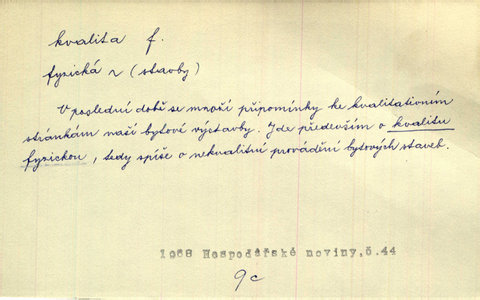 kvalita f.
fyzická ~ (stavby)
V poslední době se množí připomínky ke kvalitativním
stránkám naší bytové výstavby. Jde především o kvalitu
fyzickou, tedy spíše o nekvalitní provádění bytových staveb.
1968 Hospodářské noviny,č.44
9c